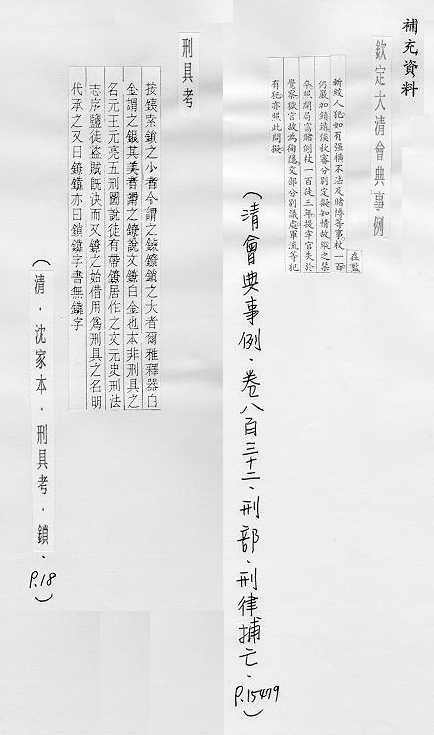 補充資料
欽定大清會典事例
在監
斬絞人犯如有強橫不法及賭博等事杖一百
仍嚴加鎖錮俟秋審分別定擬如情故縱之禁
卒照開局窩賭例杖一百徒三年提牢官失於
覺察獄官故為徇隱交部分別議處軍流等犯
有犯亦照此問擬
(清會典事例·卷八百三十二·刑部·刑律捕亡·P.15479)
刑具考
按鋃索鎖之小者今謂之鋃鐺鎖之大者爾雅釋器白
金謂之銀其美者謂之鐐說文鐐白金也本非刑具之
名元王元亮五刑圖說徒有帶鐐居作之文元史刑法
志序鹽徒盜賊既決而又鐐之始借用為刑具之名明
代承之又曰鐐鐐亦曰鎖鐐字書無鐐字
(清·沈家本·刑具考·鎖·P.18)